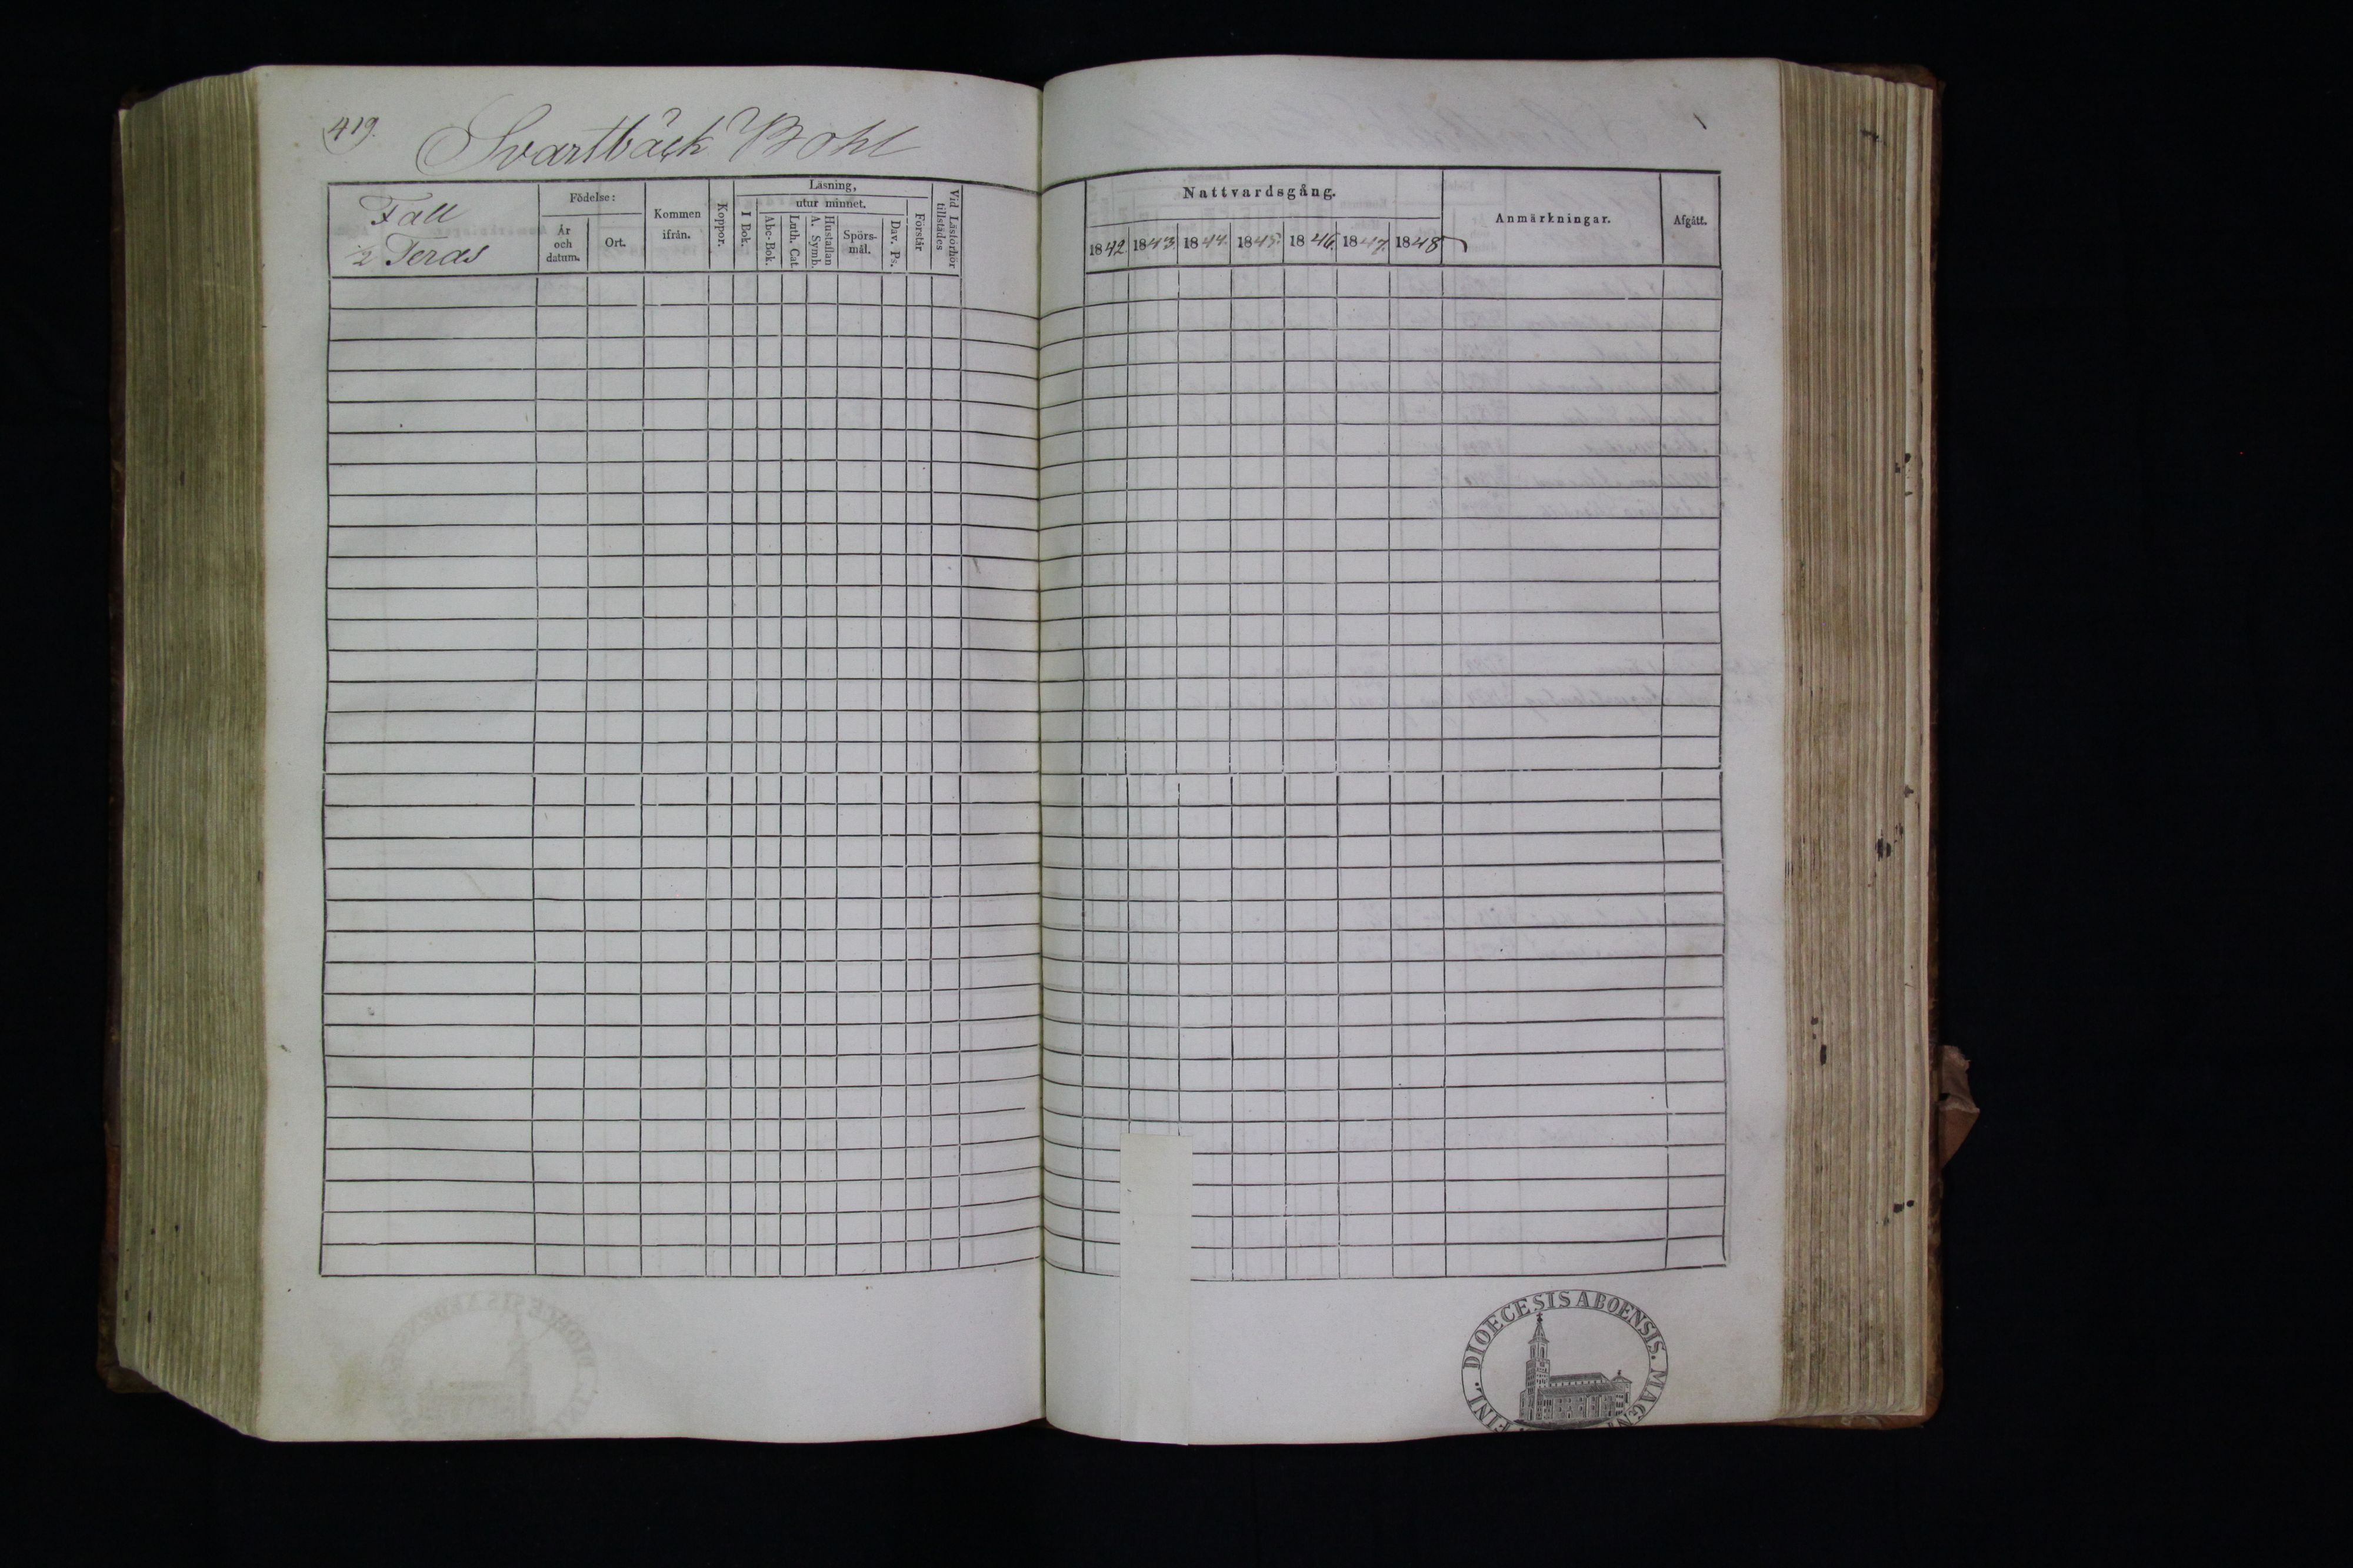 419.
Svartbäck Bohl
Fall
1/2 Teras
Födelse:
År
och
datum.
Ort.
Kommen
ifrån.
Koppor.
Läsning,
I Bok.
utur minnet.
Abc-Bok.
Luth. Cat.
Hustaflan
A. Symb.
Spörs-
mål.
Dav. Ps.
Förstår
Vid Läsförhör
tillstädes
Nattvardsgång.
1842. 1843. 1844. 1845. 1846. 1847. 1848
Anmärkningar.
Afgått.
FINL. DIOECESIS ABOENSIS. MAGN